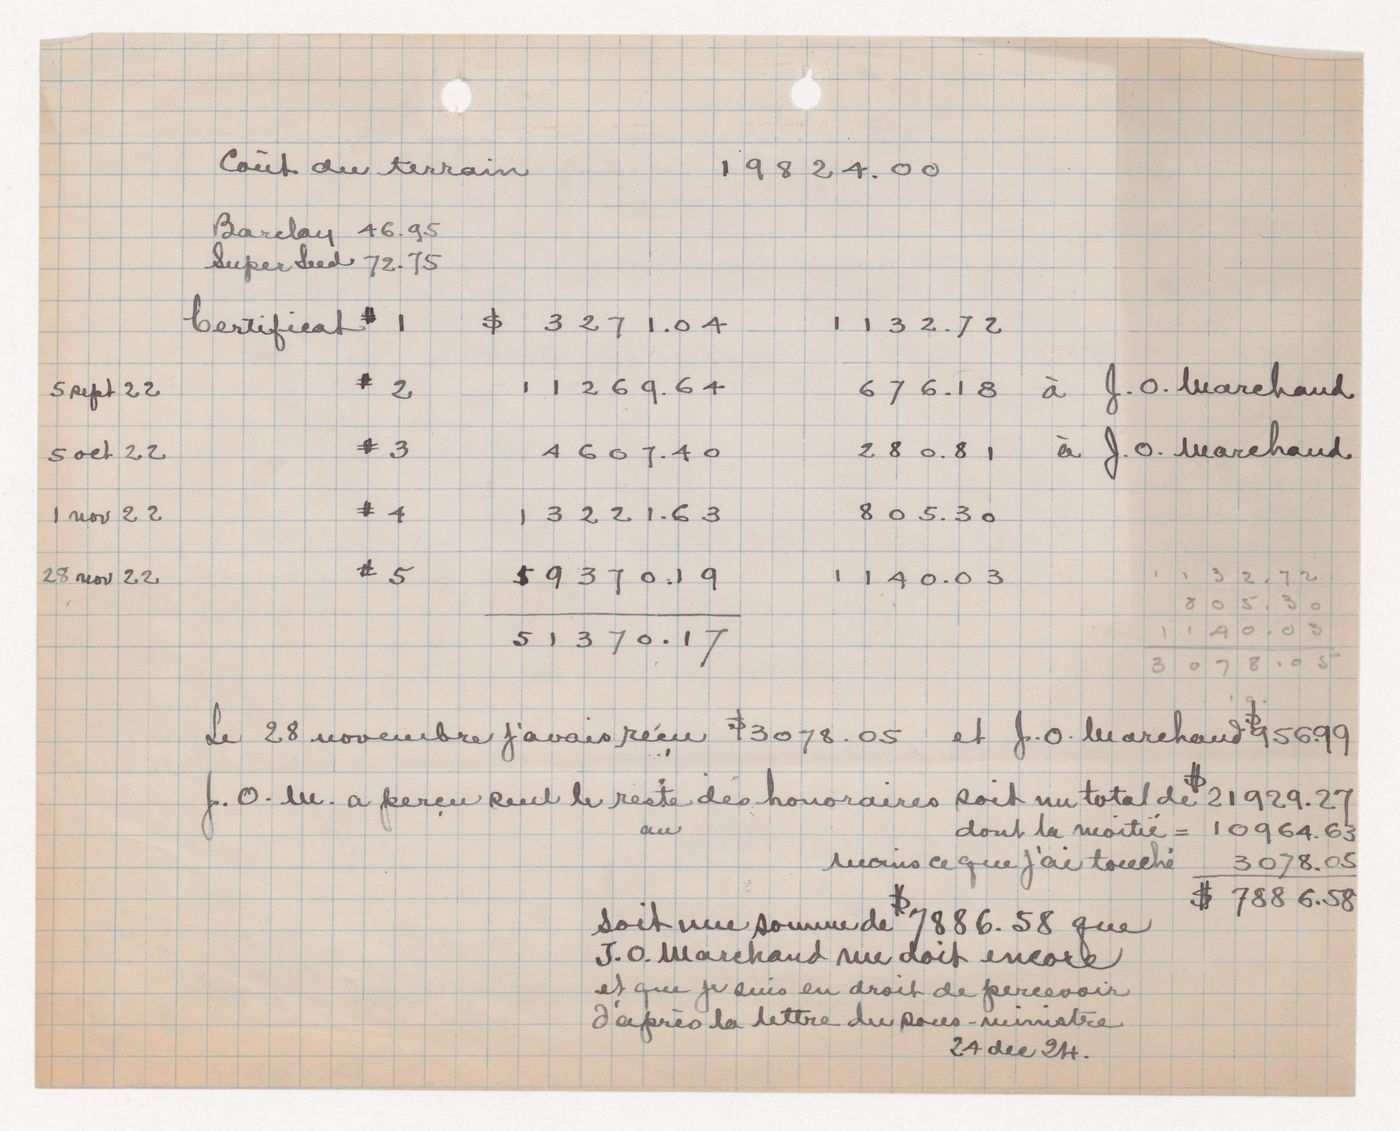 Coût du terrain 19824.00
Barclay 46.95
Super Seed 72.75
Certificat # 1 $ 3271.04 1132.72
5 sept 22 # 2 11269.64 676.18 à J.O. Marchand
5 oct 22 # 3 4607.40 280.81 à J.O. Marchand
1 nov 22 # 4 13221.63 805.30
28 nov 22 # 5 59370.19 1140.03
51370.17
1132.72
805.30
1140.03
3078.05
Le 28 novembre j'avais reçu $3078.05 et J.O. Marchand $956.99
J.O.M. a perçu seul le reste des honoraires soit un total de $21929.27
au dont la moitié = 10964.63
moins ce que j'ai touché 3078.05
$ 7886.58
soit une somme de $7886.58 que
J.O. Marchand me doit encore
et que je suis en droit de percevoir
d'après la lettre du sous-ministre
24 dec 24.